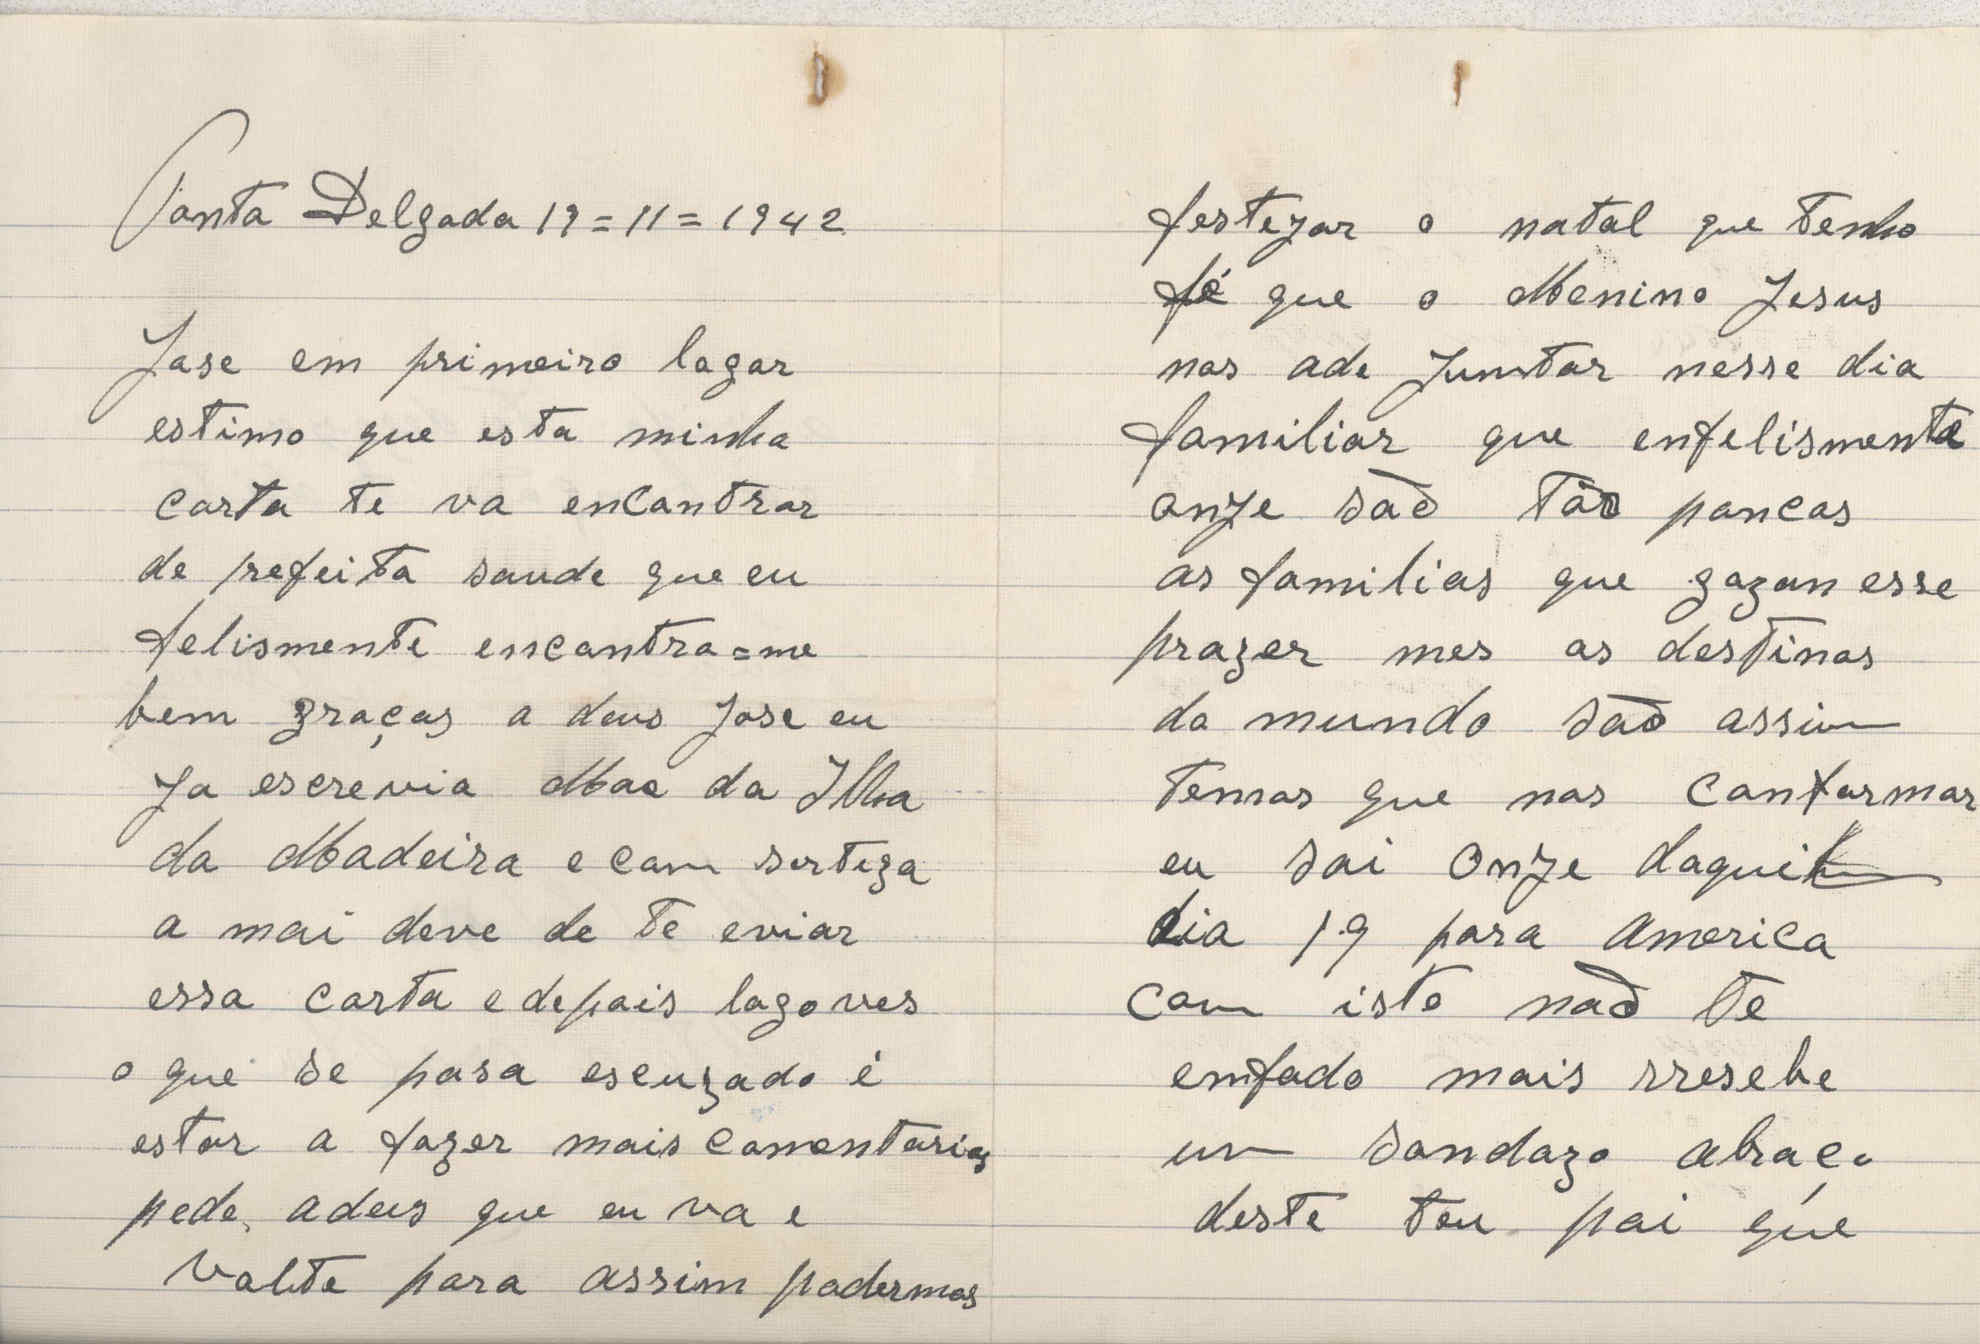 Ponta Delgada 19=11=1942
Jose em primeiro logar
estimo que esta minha
carta te va encontrar
de prefeita saude que eu
felismente encontro=me
bem graças a deus Jose eu
Ja escrevia Mae da Ilha
da Madeira e com serteza
a mai deve de te eviar
essa carta e depois logo ves
o que se pasa escuzado é
estar a fazer mais comentarios
pede, a deus que eu va e
volte para assim podermos
festezar o natal que tenho
fé que o Menino Jesus
nos ade Juntar nesse dia
familiar que enfelismente
onJe são tão poucas
as familias que gozan esse
prazer mes os destinos
do mundo são assim
temos que nos conformar
eu sai OnJe daqui
dia 19 para America
com isto não te
emfado mais rresebe
um sondazo abraço
deste teu pai que